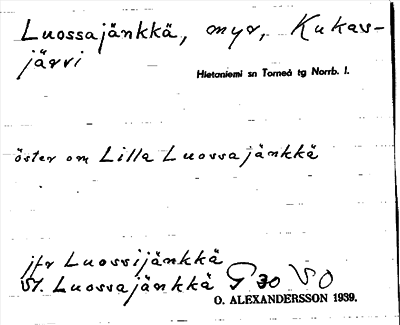 Luossajänkkä, myr, Kukas-
järvi
Hietaniemi sn Torneå tg Norrb. l.
öster om Lilla Luossajänkkä
jfr Luossijänkkä
St. Luossajänkkä 30 SO
O. ALEXANDERSSON 1939.